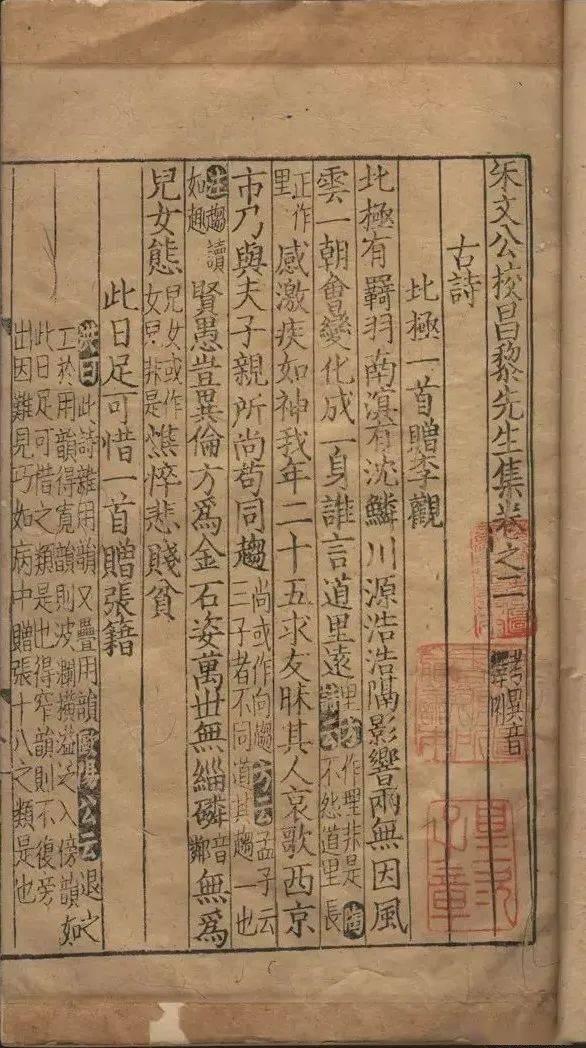 朱文公校昌黎先生集卷之二 考異音釋附
古詩
北極一首贈李觀
北極有羇羽南溟有沈鱗川源浩浩隔影響兩無因風
雲一朝會變化成一身誰言道里遠里方作理非是不然道里長
正作里感激疾如神我年二十五求友昧其人哀歌西京
市乃與夫子親所尚苟同趨尚或作向趨方云孟子云三子者不同道其趨一也
注趨讀如趣賢愚豈異倫方為金石姿萬世無緇磷音鄰無為
兒女態兒女或作女兒非是憔悴悲賤貧
此日足可惜一首贈張籍
洪曰此詩雜用韻又疊用韻歐陽公云退之
工於用韻得寬韻則波瀾橫溢泛入傍韻如
此日足可惜之類是也得窄韻則不復旁
出因難見巧如病中贈張十八之類是也